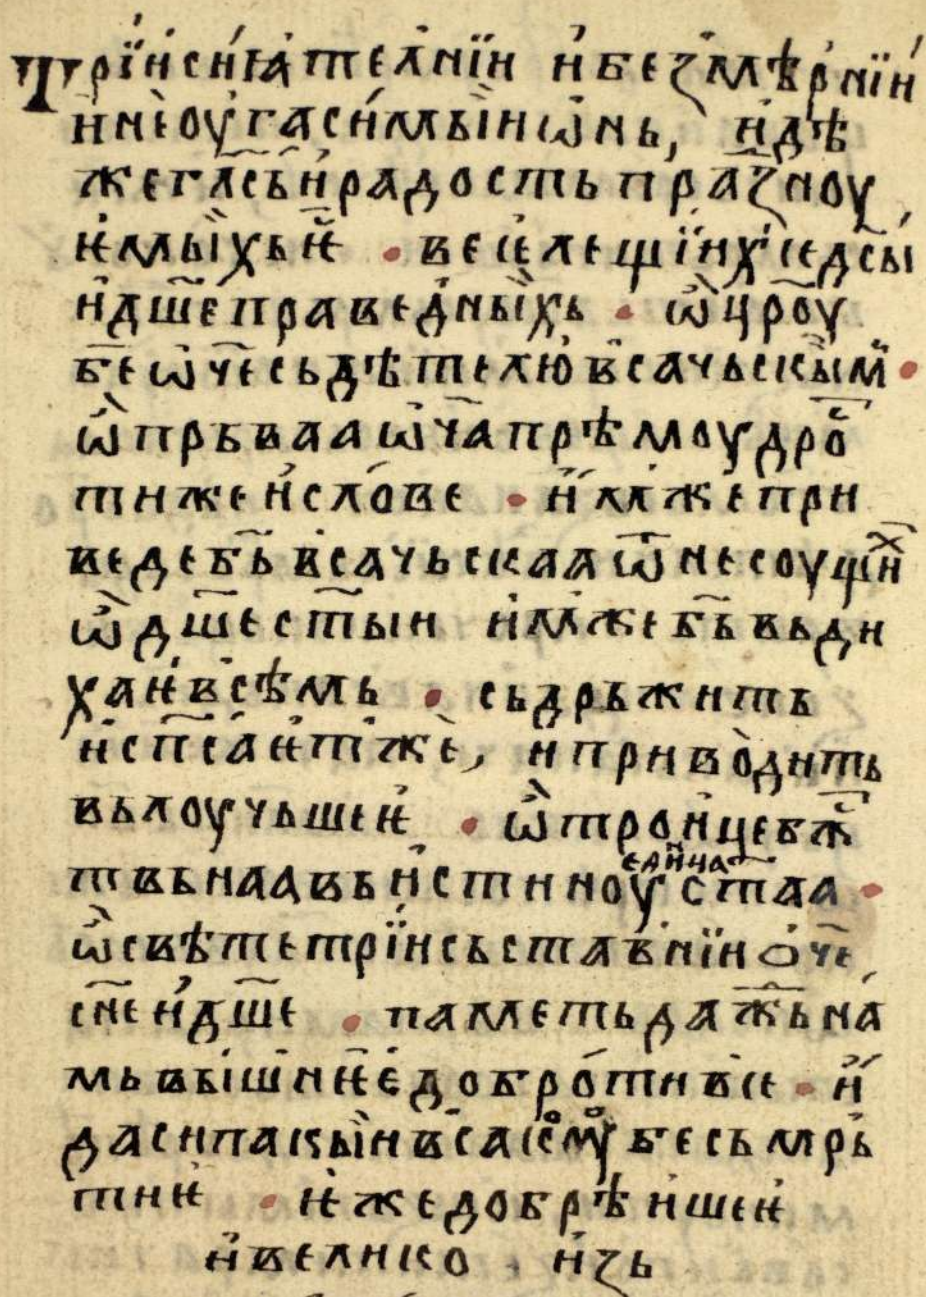 трїисиꙗ́телнїи и҆беꙁмѣ́рнїи
и҆нѐоу҆гаси́мыи ѡ҆нь, и҆дѣ
жегл҃сьи҆радость праꙁноу
ѥ҆мы́хьѥ҆ · весе́лещїиⷯсе дс҃ы
и҆дш҃е праве́дныхь · ѽ цр҃оу
бе҃ ѡч҃е сьдѣтелю в҆сачьскыⷨ ·
ѽ прьваа ѡч҃а прѣмоудроⷭ
тиже и҆сло́ве · и҆́мже при
веде бь҃ в҆сачьскаа ѿ несоущиⷯ
ѽ дш҃е ст҃ыи и҆мже бь҃ вьди
хаѥ҆ в҆сѣмь · сьдрьжить
и҆сп҃саѥ҆тже, и приводить
вьлоучьшеѥ҆ · ѽ трои҆це бжⷭ
твьнаа вьи҆стинноу еди́ица ст҃аа ·
ѽ свѣте трїисьставнїи ѻч҃е
сн҃е и҆дш҃е · паметь дажⷣь на́
мь вы́шнѥе добро́ти все · и҆́
даси пакыи в҆са семоу бесьмрь
тиѥ · ѥ҆же добрѣи҆шеѥ҆
и҆велико · и҆ꙁь